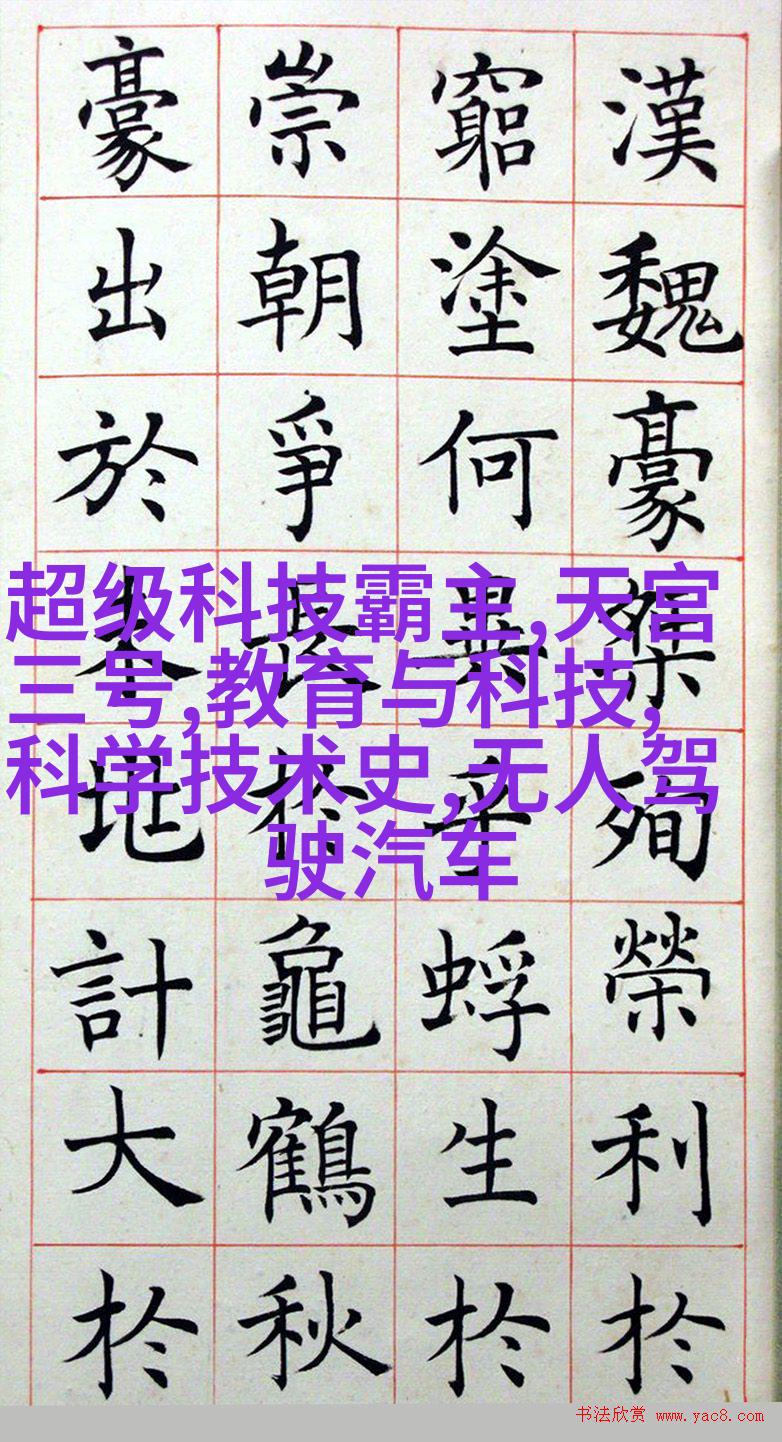 漢魏豪傑殉榮利於
窮塗何異乎蜉生於
崇朝爭長於龜鶴秋
豪出於地計大於
超级科技霸主,天宫
三号,教育与科技,
科学技术史,无人驾
驶汽车
书法欣赏 www.yac8.com